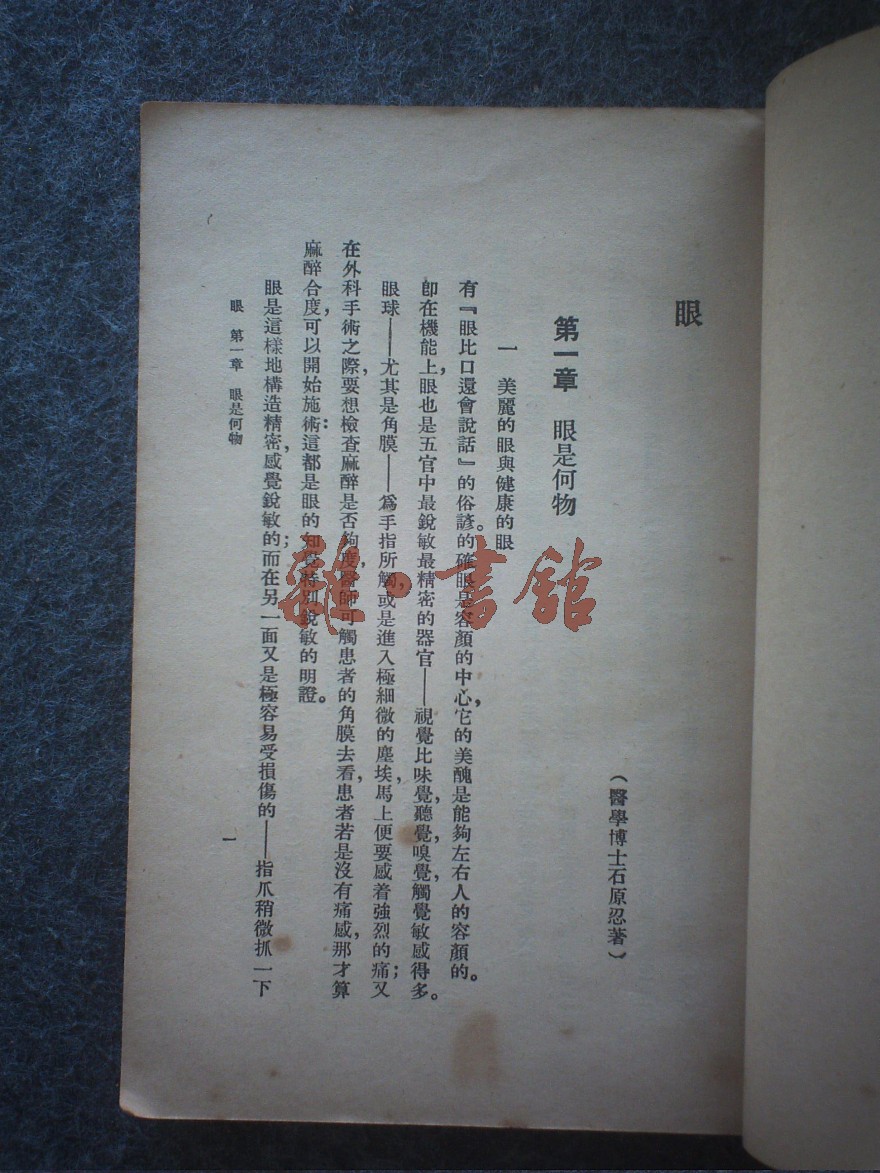 眼
(醫學博士石原忍著)
第一章 眼是何物
一 美麗的眼與健康的眼
有『眼比口還會說話』的俗諺。的確眼是容顏的中心，它的美醜是能夠左右人的容顏的。
卽在機能上，眼也是五官中最銳敏最精密的器官——視覺比味覺，聽覺，嗅覺，觸覺敏感得多。
眼球——尤其是角膜——爲手指所觸，或是進入極細微的塵埃，馬上便要感着強烈的痛；又
在外科手術之際，要想檢查麻醉是否夠度，醫師可觸患者的角膜去看，患者若是沒有痛感，那才算
麻醉合度，可以開始施術：這都是眼的知覺特別銳敏的明證。
眼是這樣地構造精密，感覺銳敏的；而在另一面又是極容易受損傷的——指爪稍微抓一下
眼 第一章 眼是何物
一
雜·書館